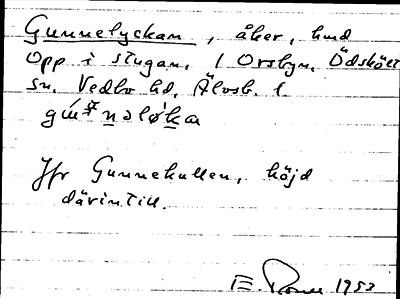 Gunnelyckan, åker, hmd
Opp i stugan, 1 Orsbyn, Ödskölt
sn. Vedbo hd, Älvsb. l.
Jfr Gunnekullen, höjd
därintill.
E. 1953